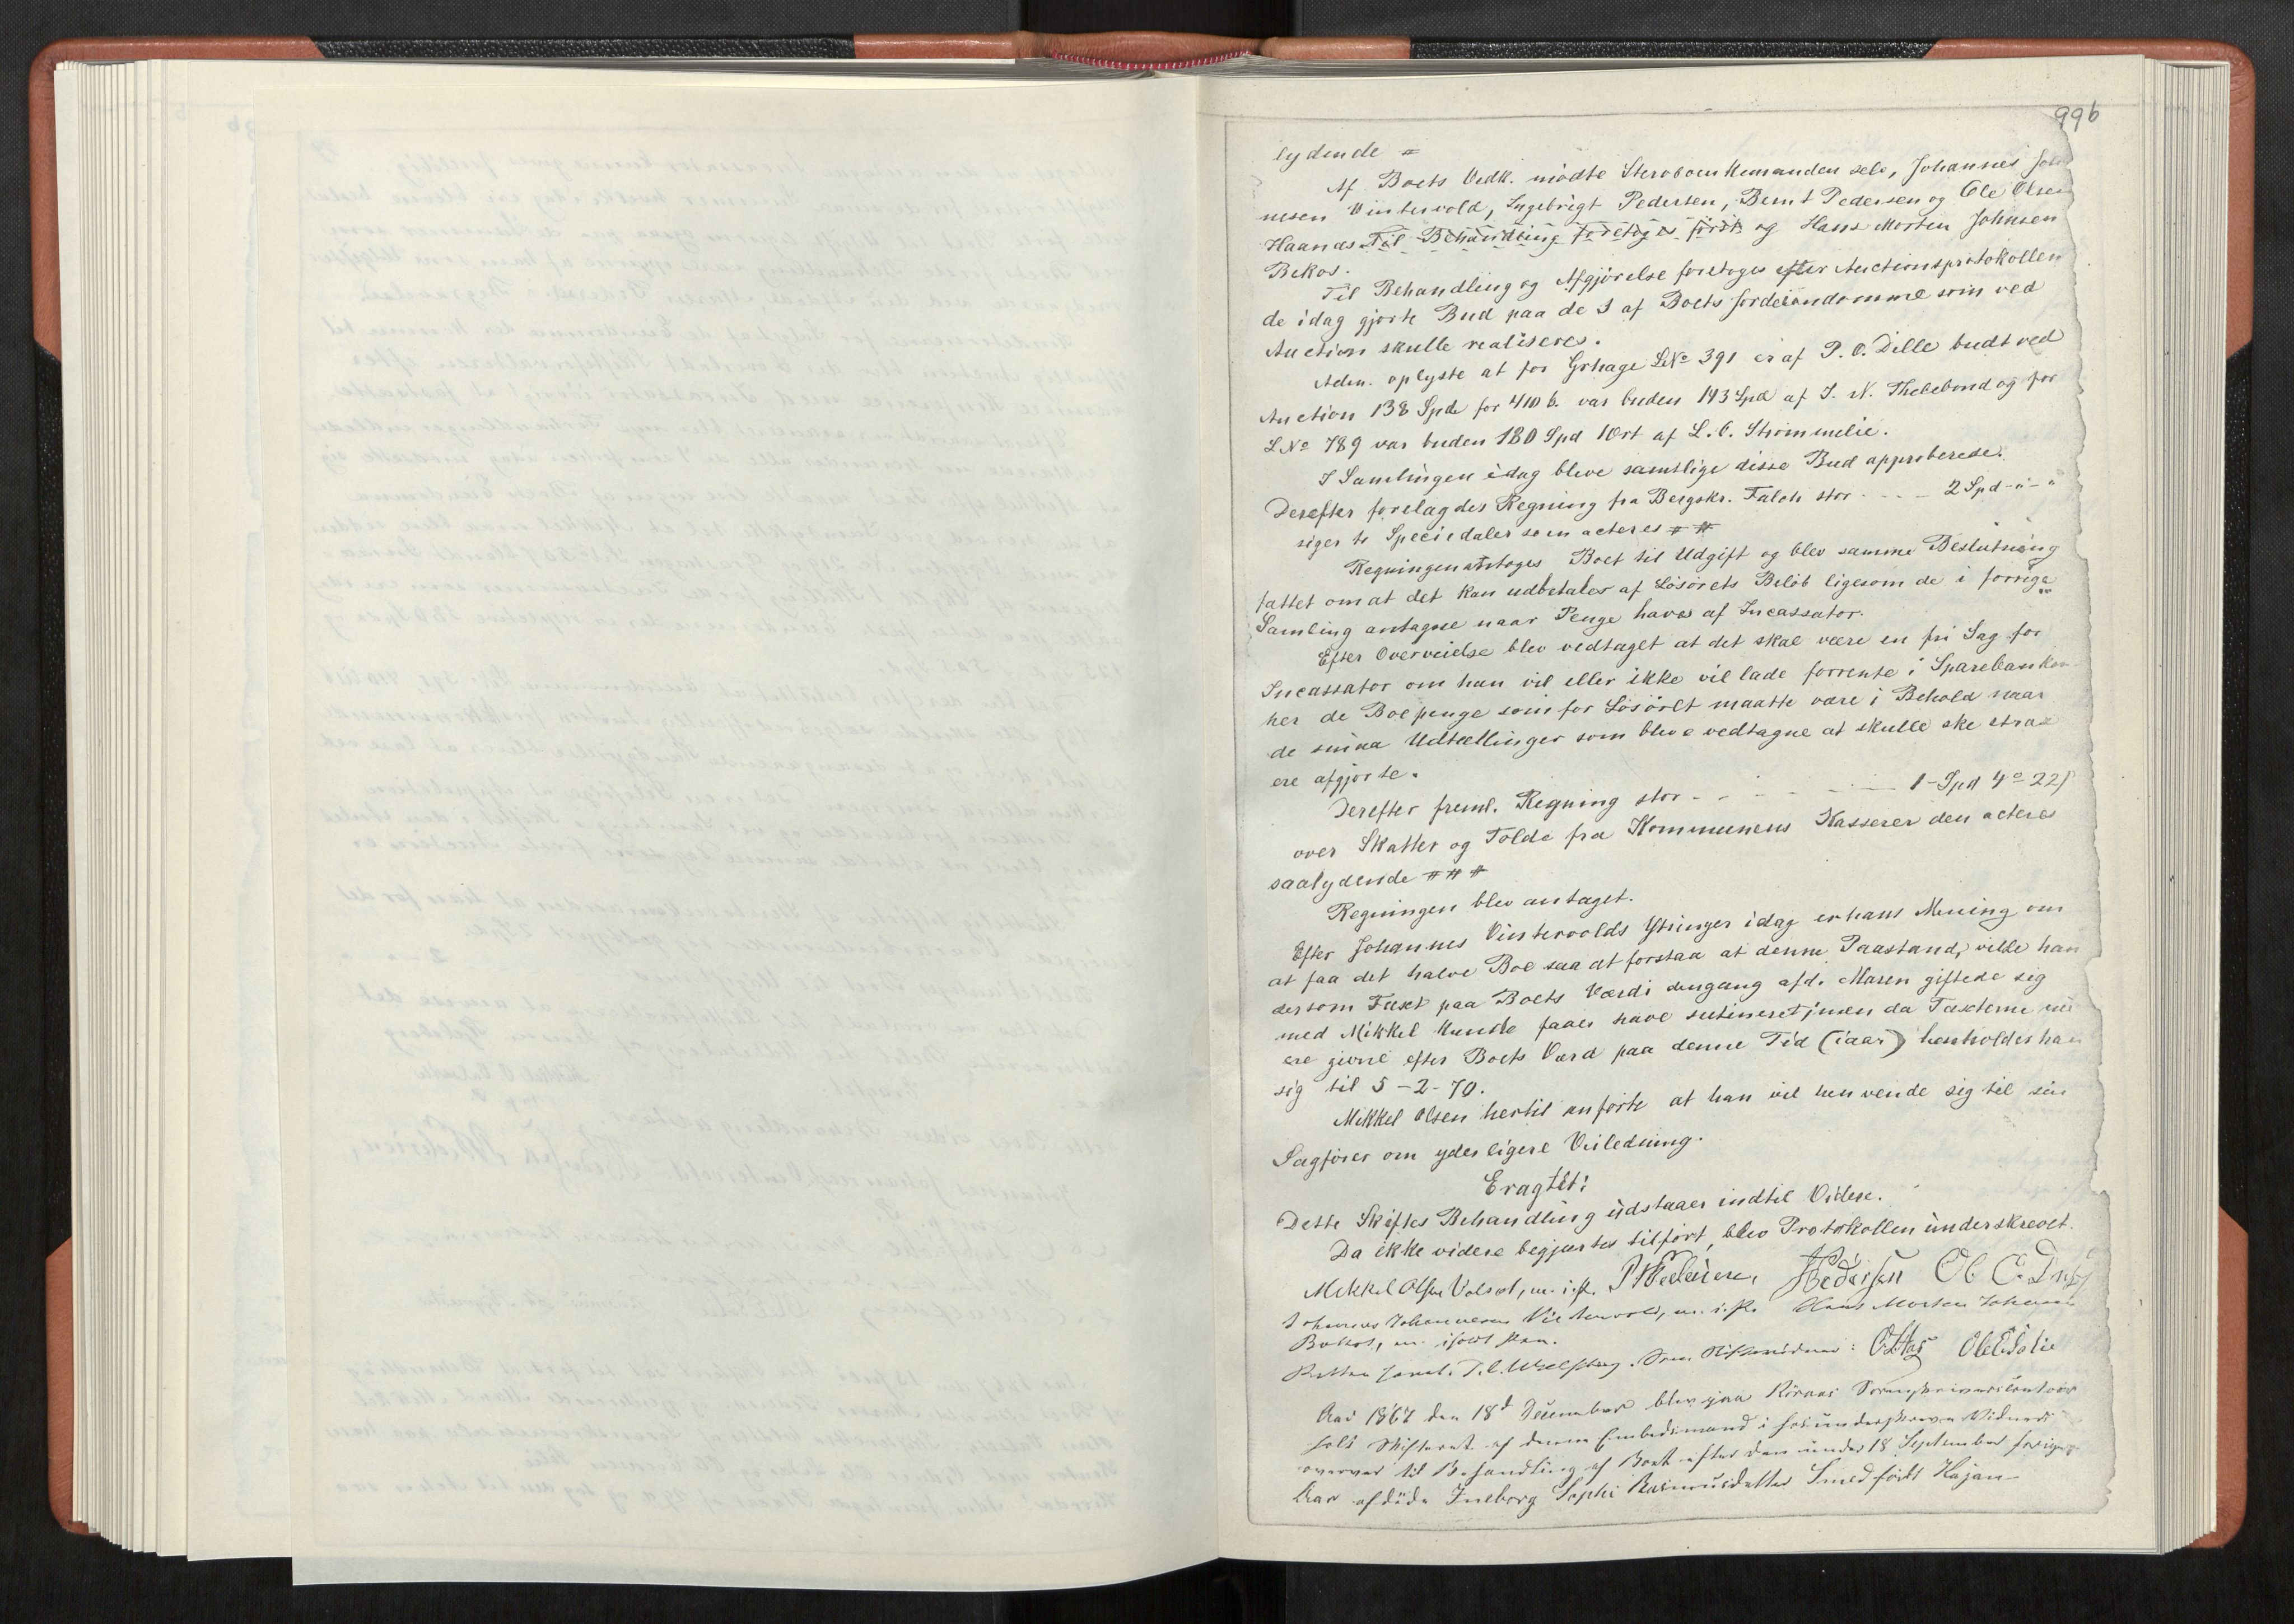 99b
lydende #
Af Boets Vedk. mødte Sterboenkemanden selv, Johannes Joha
nesen Vintervold, Ingebrigt Pedersen, Bernt Pedersen og Ole Olsen
Haanæs Til Behandling foretoges først og Hans Morten Johnsen
Bekos.
Til Behandling og Afgjørelse foretoges efter Auctionsprotokollen
de idag gjorte Bud paa de 3 af Boets fordeiendomme som ved
Auction skulle realiseres.
Adm. oplyste at for Grhage LNo 391 er af P. O. Dille budt ved
Auction 138 Spd for 410 b. var buden 143 Spd af J. N. Thelebond og for
LNo 789 var buden 180 Spd 1 Ort af L. C. Strømmelie.
I Samlingen idag bleve samtlige disse Bud approberede.
Derefter forelagdes Regning fra Bergskr. Falch stor - - - 2 Spd - " - "
siger to Speciedaler som acteres # #
Regningen antoges Boet til Udgift og blev samme Beslutning
fattet om at det kan udbetales af Løsørets Beløb ligesom de i forrige
Samling antagne naar Penge haves af Incassator.
Efter Overveielse blev vedtaget at det skal være en fri Sag for
Incassator om han vil eller ikke vil lade forrente i Sparebanken
her de Boepenge som for Løsøret maatte være i Behold naar
de smaa Udtællinger som bleve vedtagne at skulle ske strax
ere afgjorte.
Derefter freml. Regning stor - - - - - - 1 - Spd 4 o 22 s
over Skatter og Tolde fra Kommunens Kasserer den acteres
saalydende # # #
Regningen blev antaget.
Efter Johannes Vintervolds Ytringer idag er hans Mening om
at faa det halve Boe saa at forstaa at denne Paastand, vilde han
dersom Taxt paa Boets Værdi dengang afd. Maren giftede sig
med Mikkel kunde faaes have sutineret; men da Taxterne nu
ere givne efter Boets Værd paa denne Tid (iaar) henholdes han
sig til 5-2-70.
Mikkel Olsen hertil anførte at han vil henvende sig til sin
Sagfører om yderligere Veiledning.
Eragtet:
Dette Skiftes Behandling udstaaer indtil Videre.
Da ikke videre begjærtes tilført, blev Protokollen underskrevet.
Mikkel Olsen Volset, m. i. P. Pedersen, Pedersen
Johannes Johannesen Vintervold, m. i. P. Hans Morten Johnsen
Bekos, m. iholdt Pen.
Retten hævet. Som Skiftevidner:
Aar 1867 den 18d December blev paa Röraas Sorenskrivercontoir
holdt Skifteret af denne Embedsmand i hosunderskrevne Vidners
overvær til Behandling af Boet efter den under 18 September forige
Aar afdøde Ineborg Sophi Rasmusdatter Smed født Hajan